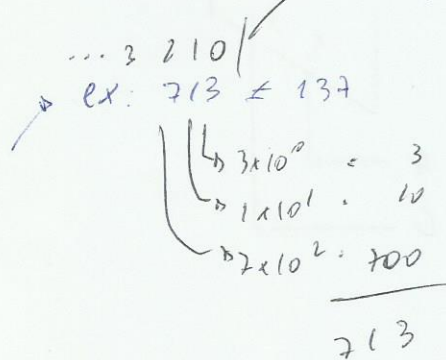 ... 3 2 1 0
ex: 713 ≠ 137
3x10⁰ = 3
1x10¹ = 10
7x10² = 700
713